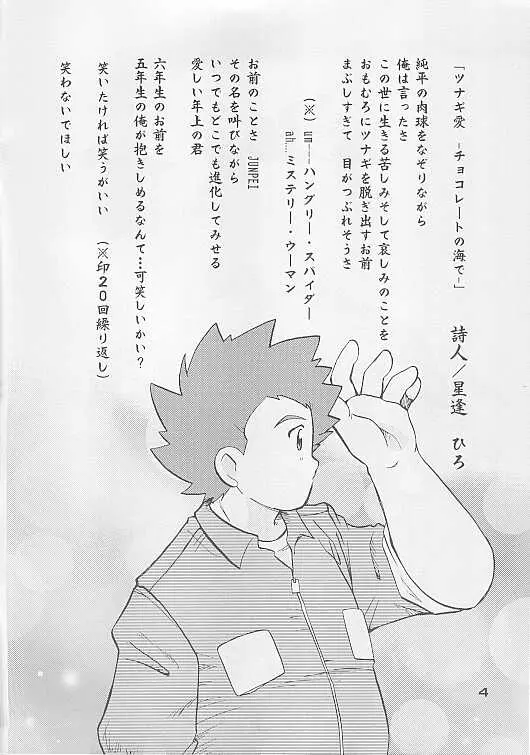 「ツナギ愛 -チョコレートの海で-」
詩人/星逢 ひろ
純平の肉球をなぞりながら
俺は言ったさ
この世に生きる苦しみそして哀しみのことを
おもむろにツナギを脱ぎ出すお前
まぶしすぎて 目がつぶれそうさ
(※) un……ハングリー・スパイダー
ah……ミステリー・ウーマン
お前のことさ JUNPEI
その名を叫びながら
いつでもどこでも進化してみせる
愛しい年上の君
六年生のお前を
五年生の俺が抱きしめるなんて…可笑しいかい?
笑いたければ笑うがいい (※印20回繰り返し)
笑わないでほしい
4